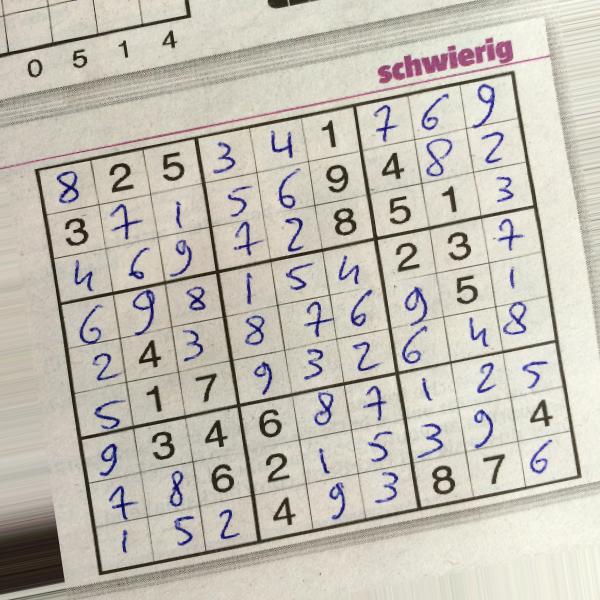 0 5 1 4
schwierig
8 2 5 3 4 1 7 6 9
3 7 1 5 6 9 4 8 2
4 6 9 7 2 8 5 1 3
6 9 8 1 5 4 2 3 7
2 4 3 8 7 6 9 5 1
5 1 7 9 3 2 6 4 8
9 3 4 6 8 7 1 2 5
7 8 6 2 1 5 3 9 4
1 5 2 4 9 3 8 7 6